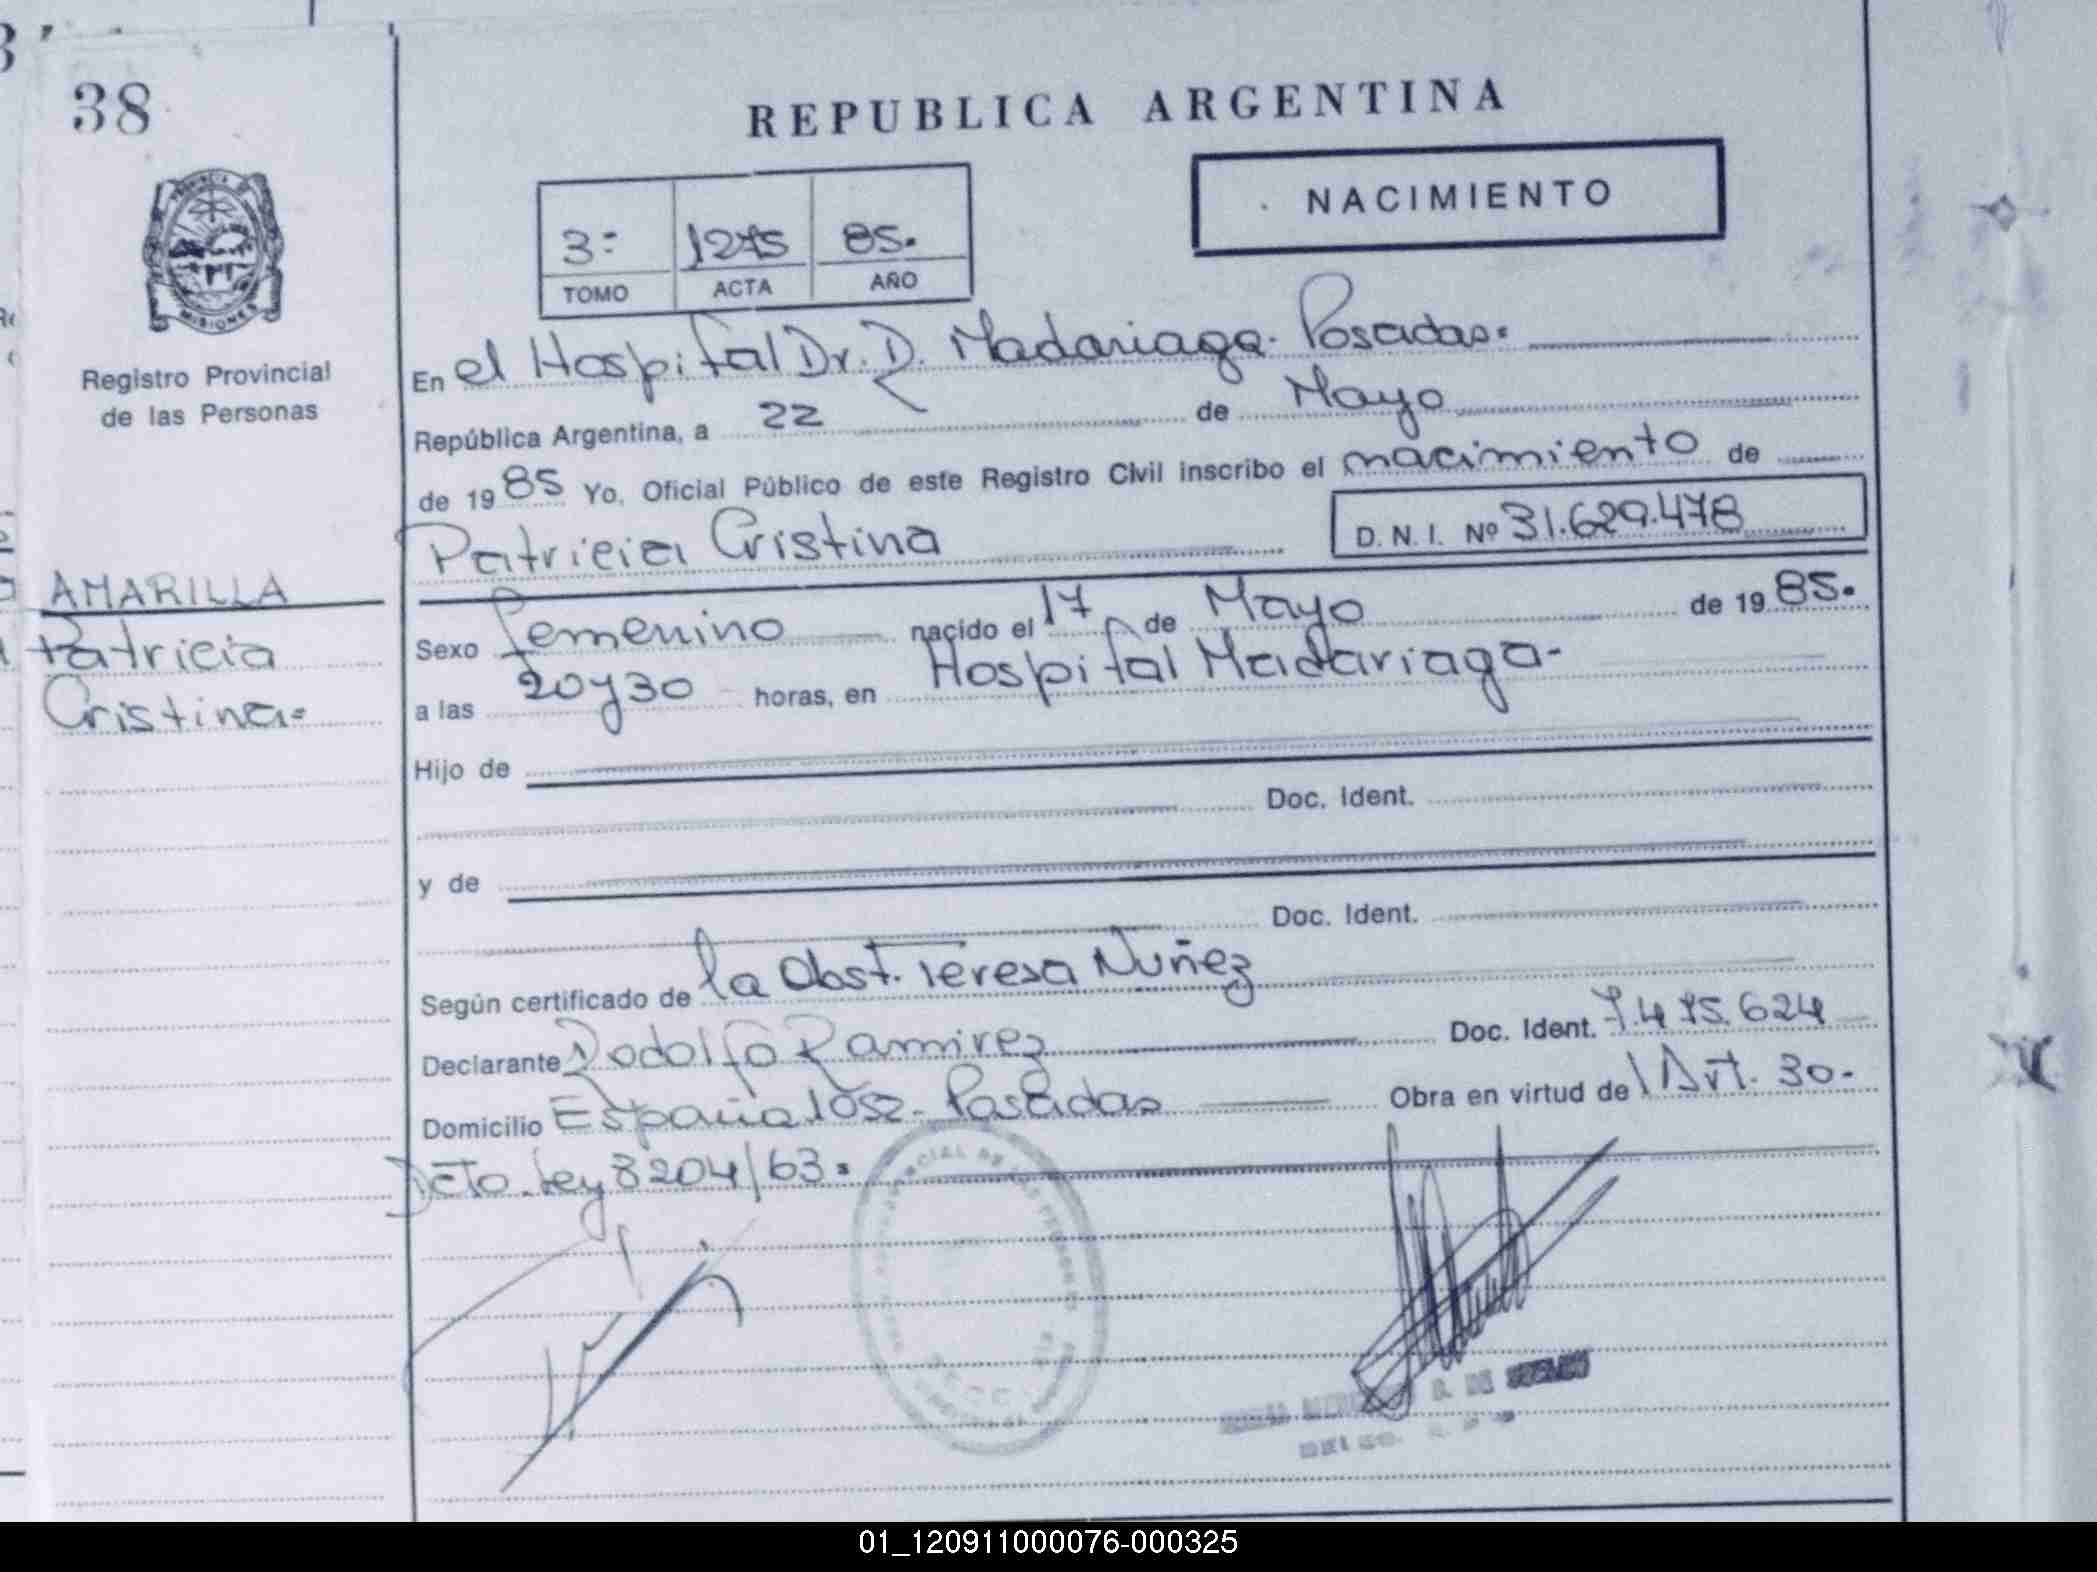 38
REPUBLICA ARGENTINA
NACIMIENTO
3- 1275 85.
TOMO ACTA AÑO
PROVINCIA DE
MISIONES
Registro Provincial
de las Personas
En el Hospital Dr. R. Madariaga. Posadas.
República Argentina, a 22 de Mayo
de 1985 Yo, Oficial Público de este Registro Civil inscribo el nacimiento de
Patricia Cristina D. N. I. Nº 31.629.478
AMARILLA
Patricia
Cristina=
Sexo femenino nacido el 17 de Mayo de 1985.
a las 20y30 horas, en Hospital Madariaga-
Hijo de
Doc. Ident.
y de
Doc. Ident.
Según certificado de la Obst. Teresa Nuñez
Declarante Rodolfo Ramirez Doc. Ident. 7.475.624
Domicilio España 1052- Posadas Obra en virtud de l Art. 30.
Dcto. Ley 8204/63.
01_120911000076-000325